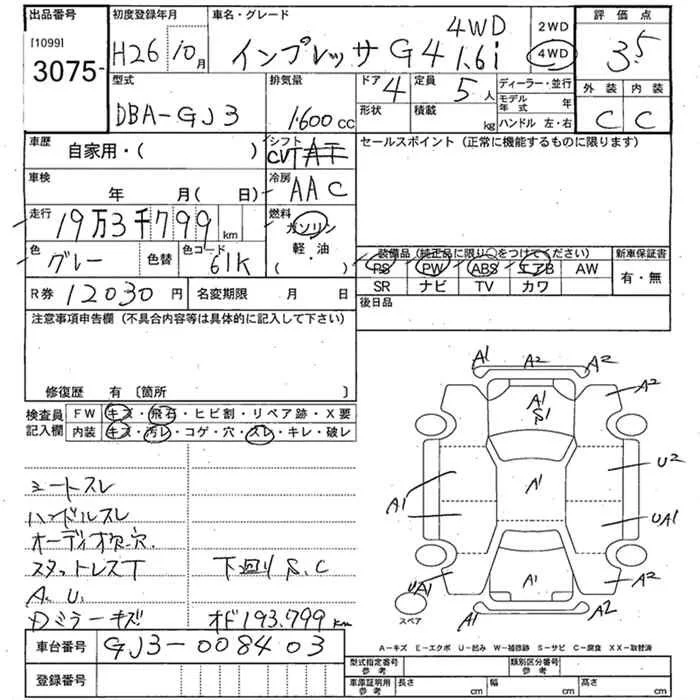 出品番号
[1099]
3075-
初度登録年月
H26 10月
車名・グレード
インプレッサ G4 1.6i
4WD
2WD
4WD
評価点
3.5
型式
DBA-GJ3
排気量
1.600cc
ドア 4
形状
定員 5人
積載 kg
ディーラー・並行
モデル年式 年
ハンドル 左・右
外装 内装
C C
車歴
自家用・( )
シフト
CVT AT
セールスポイント (正常に機能するものに限ります)
車検
年 月(日)
冷房
AAC
走行
19万3千799km
燃料
ガソリン
軽・油
( )
色
グレー
色替
色コード
61K
装備品(純正品に限り○をつけてください)
新車保証書
PS PW ABS エアB AW
SR ナビ TV カワ
有・無
R券 12030円
名変期限 月 日
後日品
注意事項申告欄 (不具合内容等は具体的に記入して下さい)
修復歴 有 〔箇所 〕
検査員記入欄
FW キズ・飛石・ヒビ割・リペア跡・X要
内装 キズ・汚レ・コゲ・穴・スレ・キレ・破レ
シートスレ
ハンドルスレ
オーディオ欠.穴.
スタットレスT
下廻り S.C
A. U.
Dミラーキズ
オド 193.799km
A1 A2 A2
A1
S1
A2
A1
A1
U2
UA1
UA1
A1
A2
A1
A2
スペア
A-キズ E-エクボ U-凹み W-補修跡 S-サビ C-腐食 XX-取替済
車台番号
GJ3-008403
登録番号
型式指定番号 参考
類別区分番号 参考
車庫証明用 参考
長さ cm
幅 cm
高さ cm